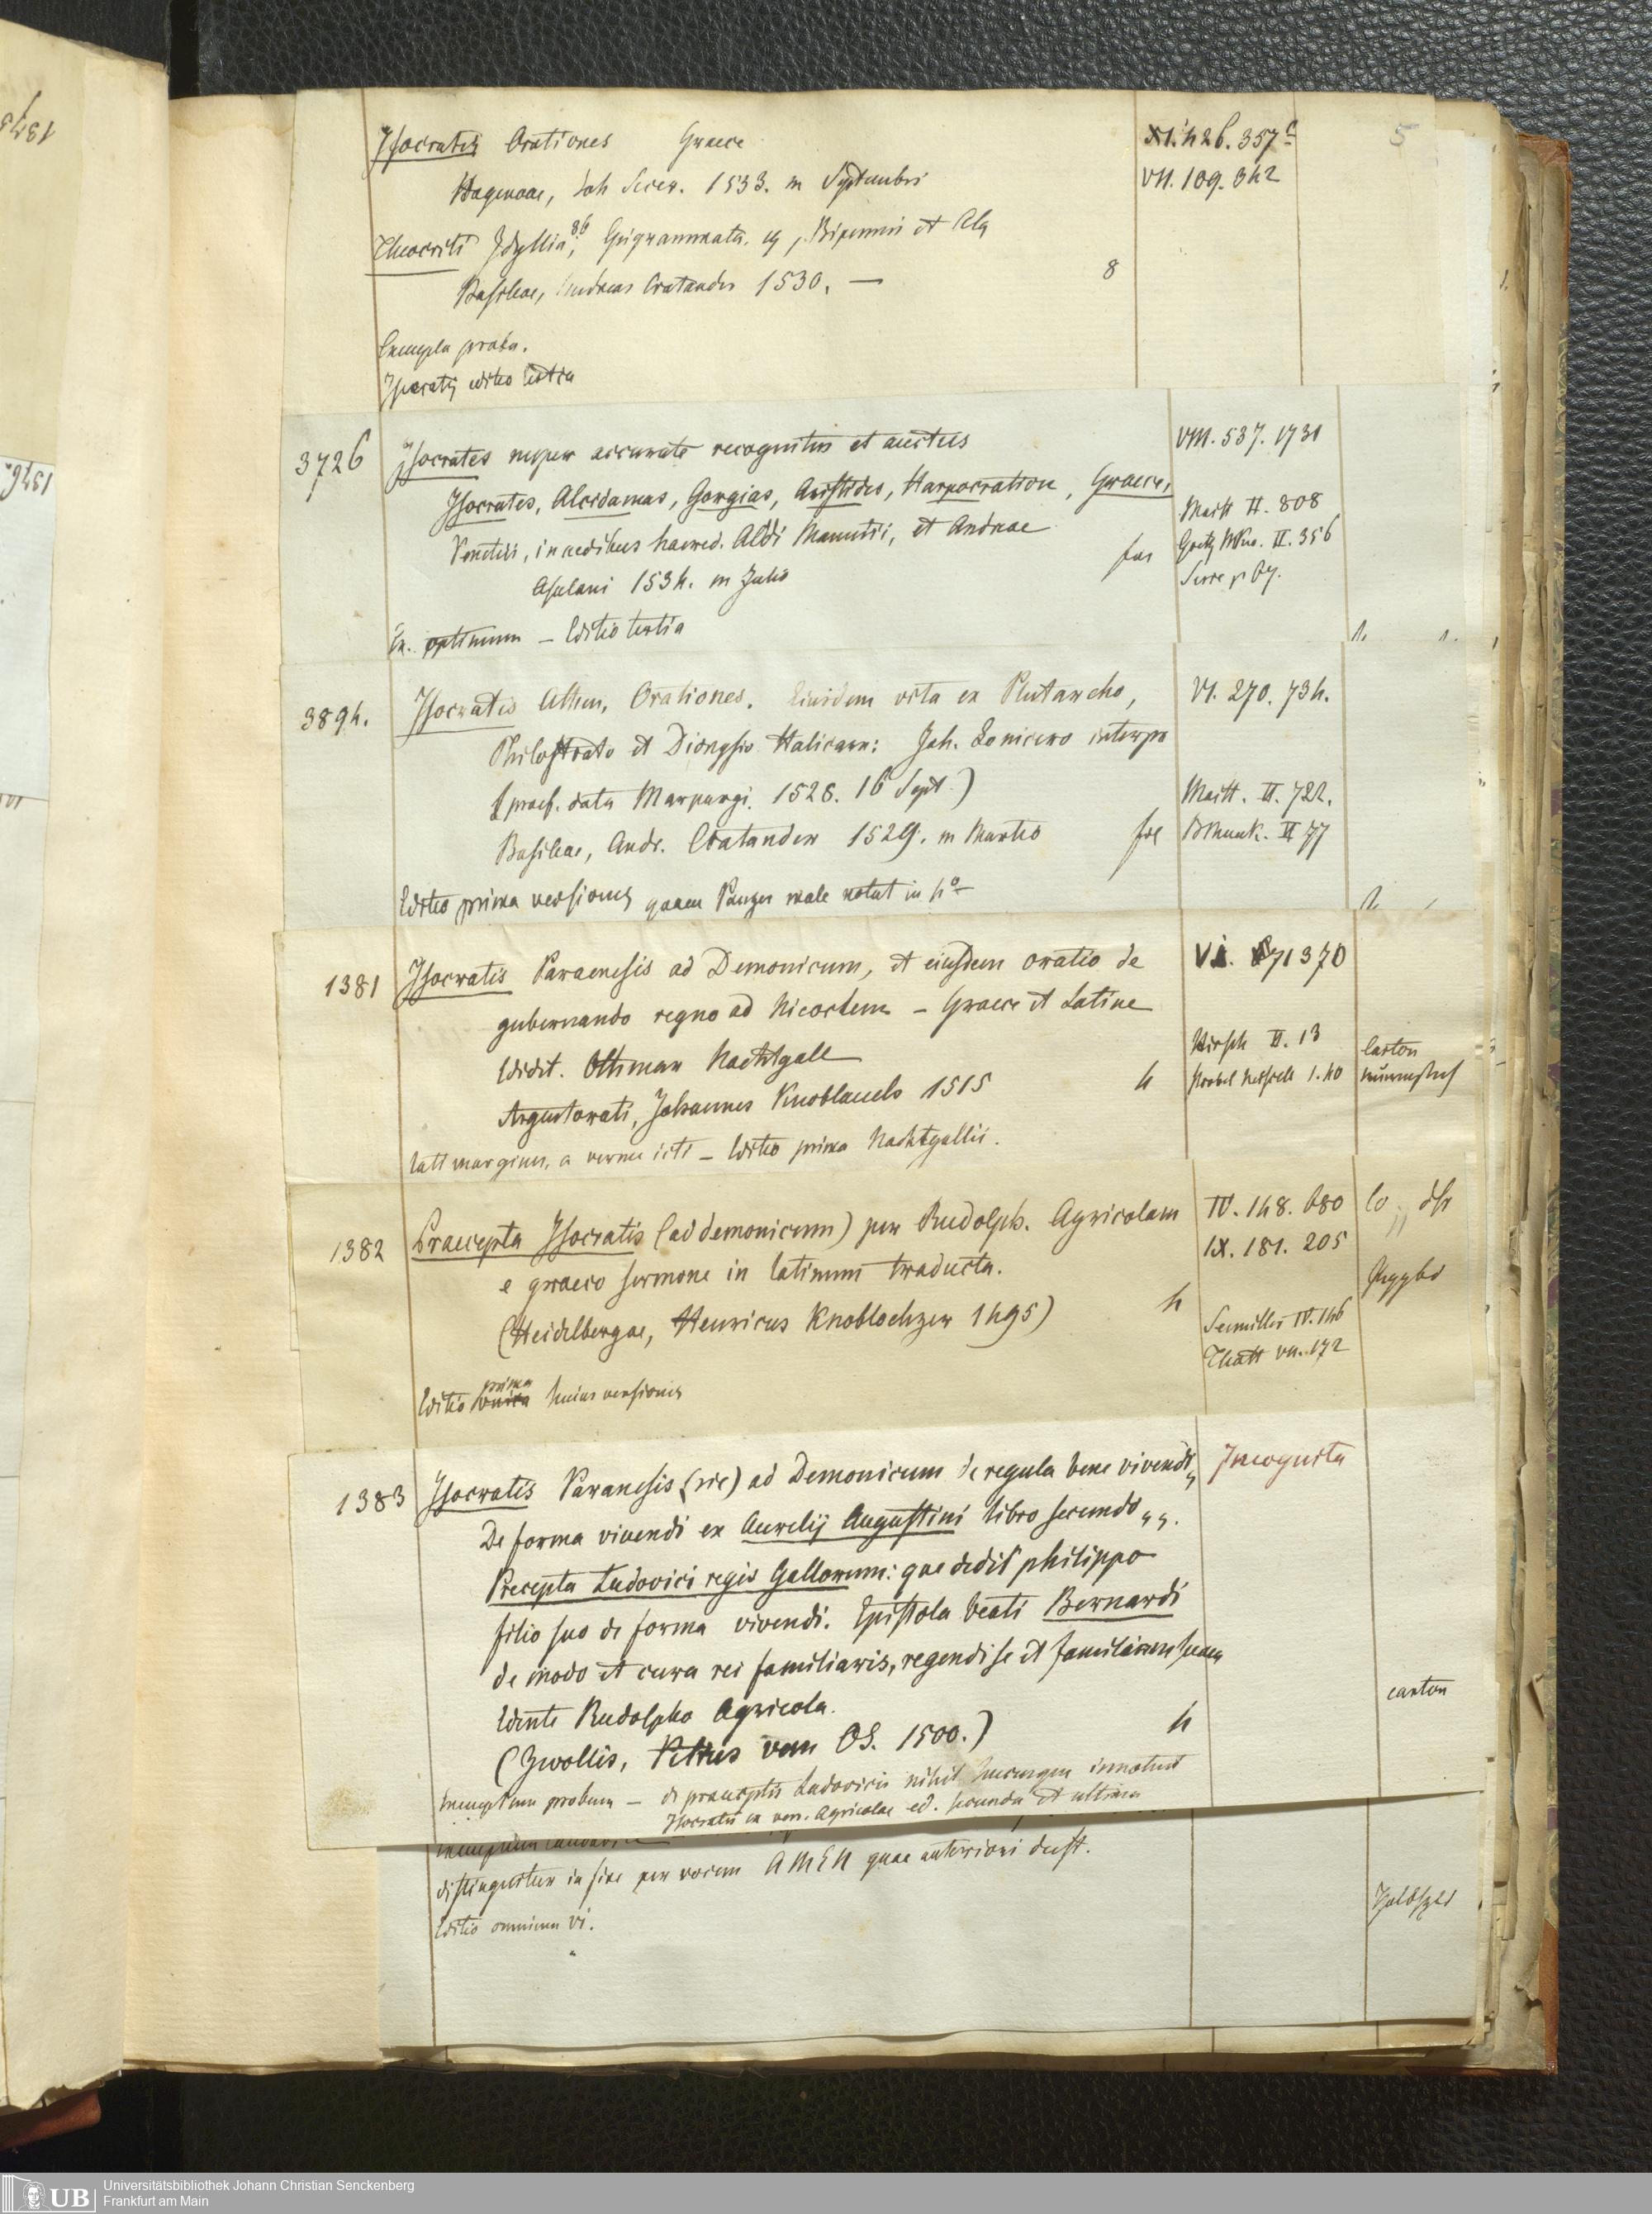 5
Isocratis Orationes Graece
Hagenoae, Joh Secer. 1533. m Septembri
XI. 426. 357 c
VII. 109. 342
Theocriti Idyllia, 36 Epigrammata. Bipennis et Ala
Basileae, Andreas Cratander 1530. — 8
Exempla proba.
Isocratis editio
3726 Isocrates nuper accurate recognitus et auctus
VIII. 537. 1731
Isocrates, Alcidamas, Gorgias, Aristides, Harpocration, Graece,
Maitt II. 808
Venetiis, in aedibus haered. Aldi Manutii, et Andreae
II. 356
Asulani 1534. m Julio
Ex. optimum — Editio tertia
3894. Isocratis Athen, Orationes. Eiusdem vita ex Plutarcho,
VI. 270. 734.
Philostrato et Dionysio Halicarn: Joh. Lonicero interpr
(praef. data Marpurgi. 1528. 16 Sept.)
Maitt. II. 722.
Basileae, Andr. Cratander 1529. m Martio fol
II 77
Editio prima versionis quam Panzer male notat in 4o
1381 Isocratis Paraenesis ad Demonicum, et eiusdem oratio de
VI. 71 370
gubernando regno ad Nicoclem — Graece et Latine
Edidit. Othmar Nachtgall
Hirsch II. 13
Argentorati, Johannes Knoblauch 1515 4
1.40
Carton
Lati margines, a verme icti — Editio prima Nachtgallii.
1382 Praecepta Isocratis (ad demonicum) per Rudolph. Agricolam
IV. 148. 680
e graeco sermone in latinum traducta.
IX. 181. 205
(Heidelbergae, Henricus Knoblochzer 1495) 4
Seemiller IV. 146
VII. 172
Editio unica prima huius versionis
1383 Isocratis Paranesis (sic) ad Demonicum de regula bene vivendi,,
Incognita
De forma vivendi ex Aurelij Augustini libro secundo,,.
Precepta Ludovici regis Gallorum: que dedit philippo
filio suo de forma vivendi. Epistola beati Bernardi
de modo et cura rei familiaris, regendi se et familiam suam
Edente Rudolpho Agricola.
carton
(Zwollis, Petrus van OS. 1500.) 4
Exemplum probum — de praeceptis Ludovicis nihil hucusque innotuit
Isocratis ex vers. Agricolae ed. secunda et ultima
distinguitur in fine per vocem AMEN quae anteriori deest.
Editio omnium VI.